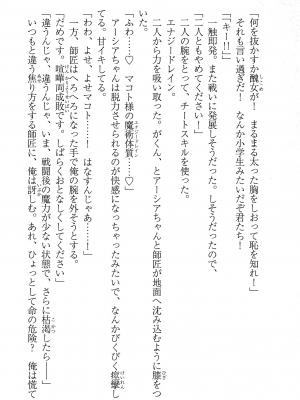 「何を抜かすか醜女が！　まるまる太った胸をしおって恥を知れ！」
それも言い過ぎだ！　なんか小学生みたいだぞ君たち！
「キーー！！」
一触即発。また戦いに発展しそうだった。しそうだったので、
「二人ともやめてください！」
二人の腕をとって、チートスキルを使った。
エナジードレイン。
二人から力を吸い取った。がくん、とアーシアちゃんと師匠が地面へ沈み込むように膝をつ
いた。
「ふわ……♡　マコト様の魔術体質……♡」
アーシアちゃんは脱力させられるのが快感になっちゃったみたいで、なんかびくびく痙攣し
てる。甘イキしてる。
一方、師匠はへろへろになった手で俺の腕を外そうとする。
「わわ、よせ、よせマコト……！　はなすんじゃあ……！」
「だめです。喧嘩両成敗です。しばらくおとなしくしてください」
「違うんじゃ、違うんじゃ、いま、戦闘後の魔力が少ない状態で、さらに枯渇したら――」
いつもと違う焦り方をする師匠に、俺は訝しむ。あれ、ひょっとして命の危険？　俺は慌て